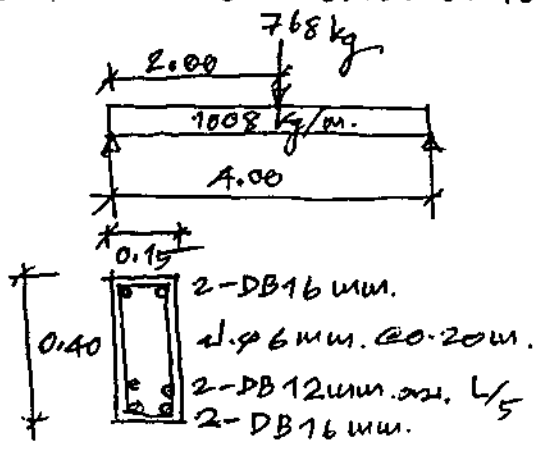 768 kg
2.00
1008 kg/m.
4.00
0.15
2-DB16 mm.
0.40
ป.φ 6 mm. @0.20 m.
2-DB12 mm. L/5
2-DB16 mm.